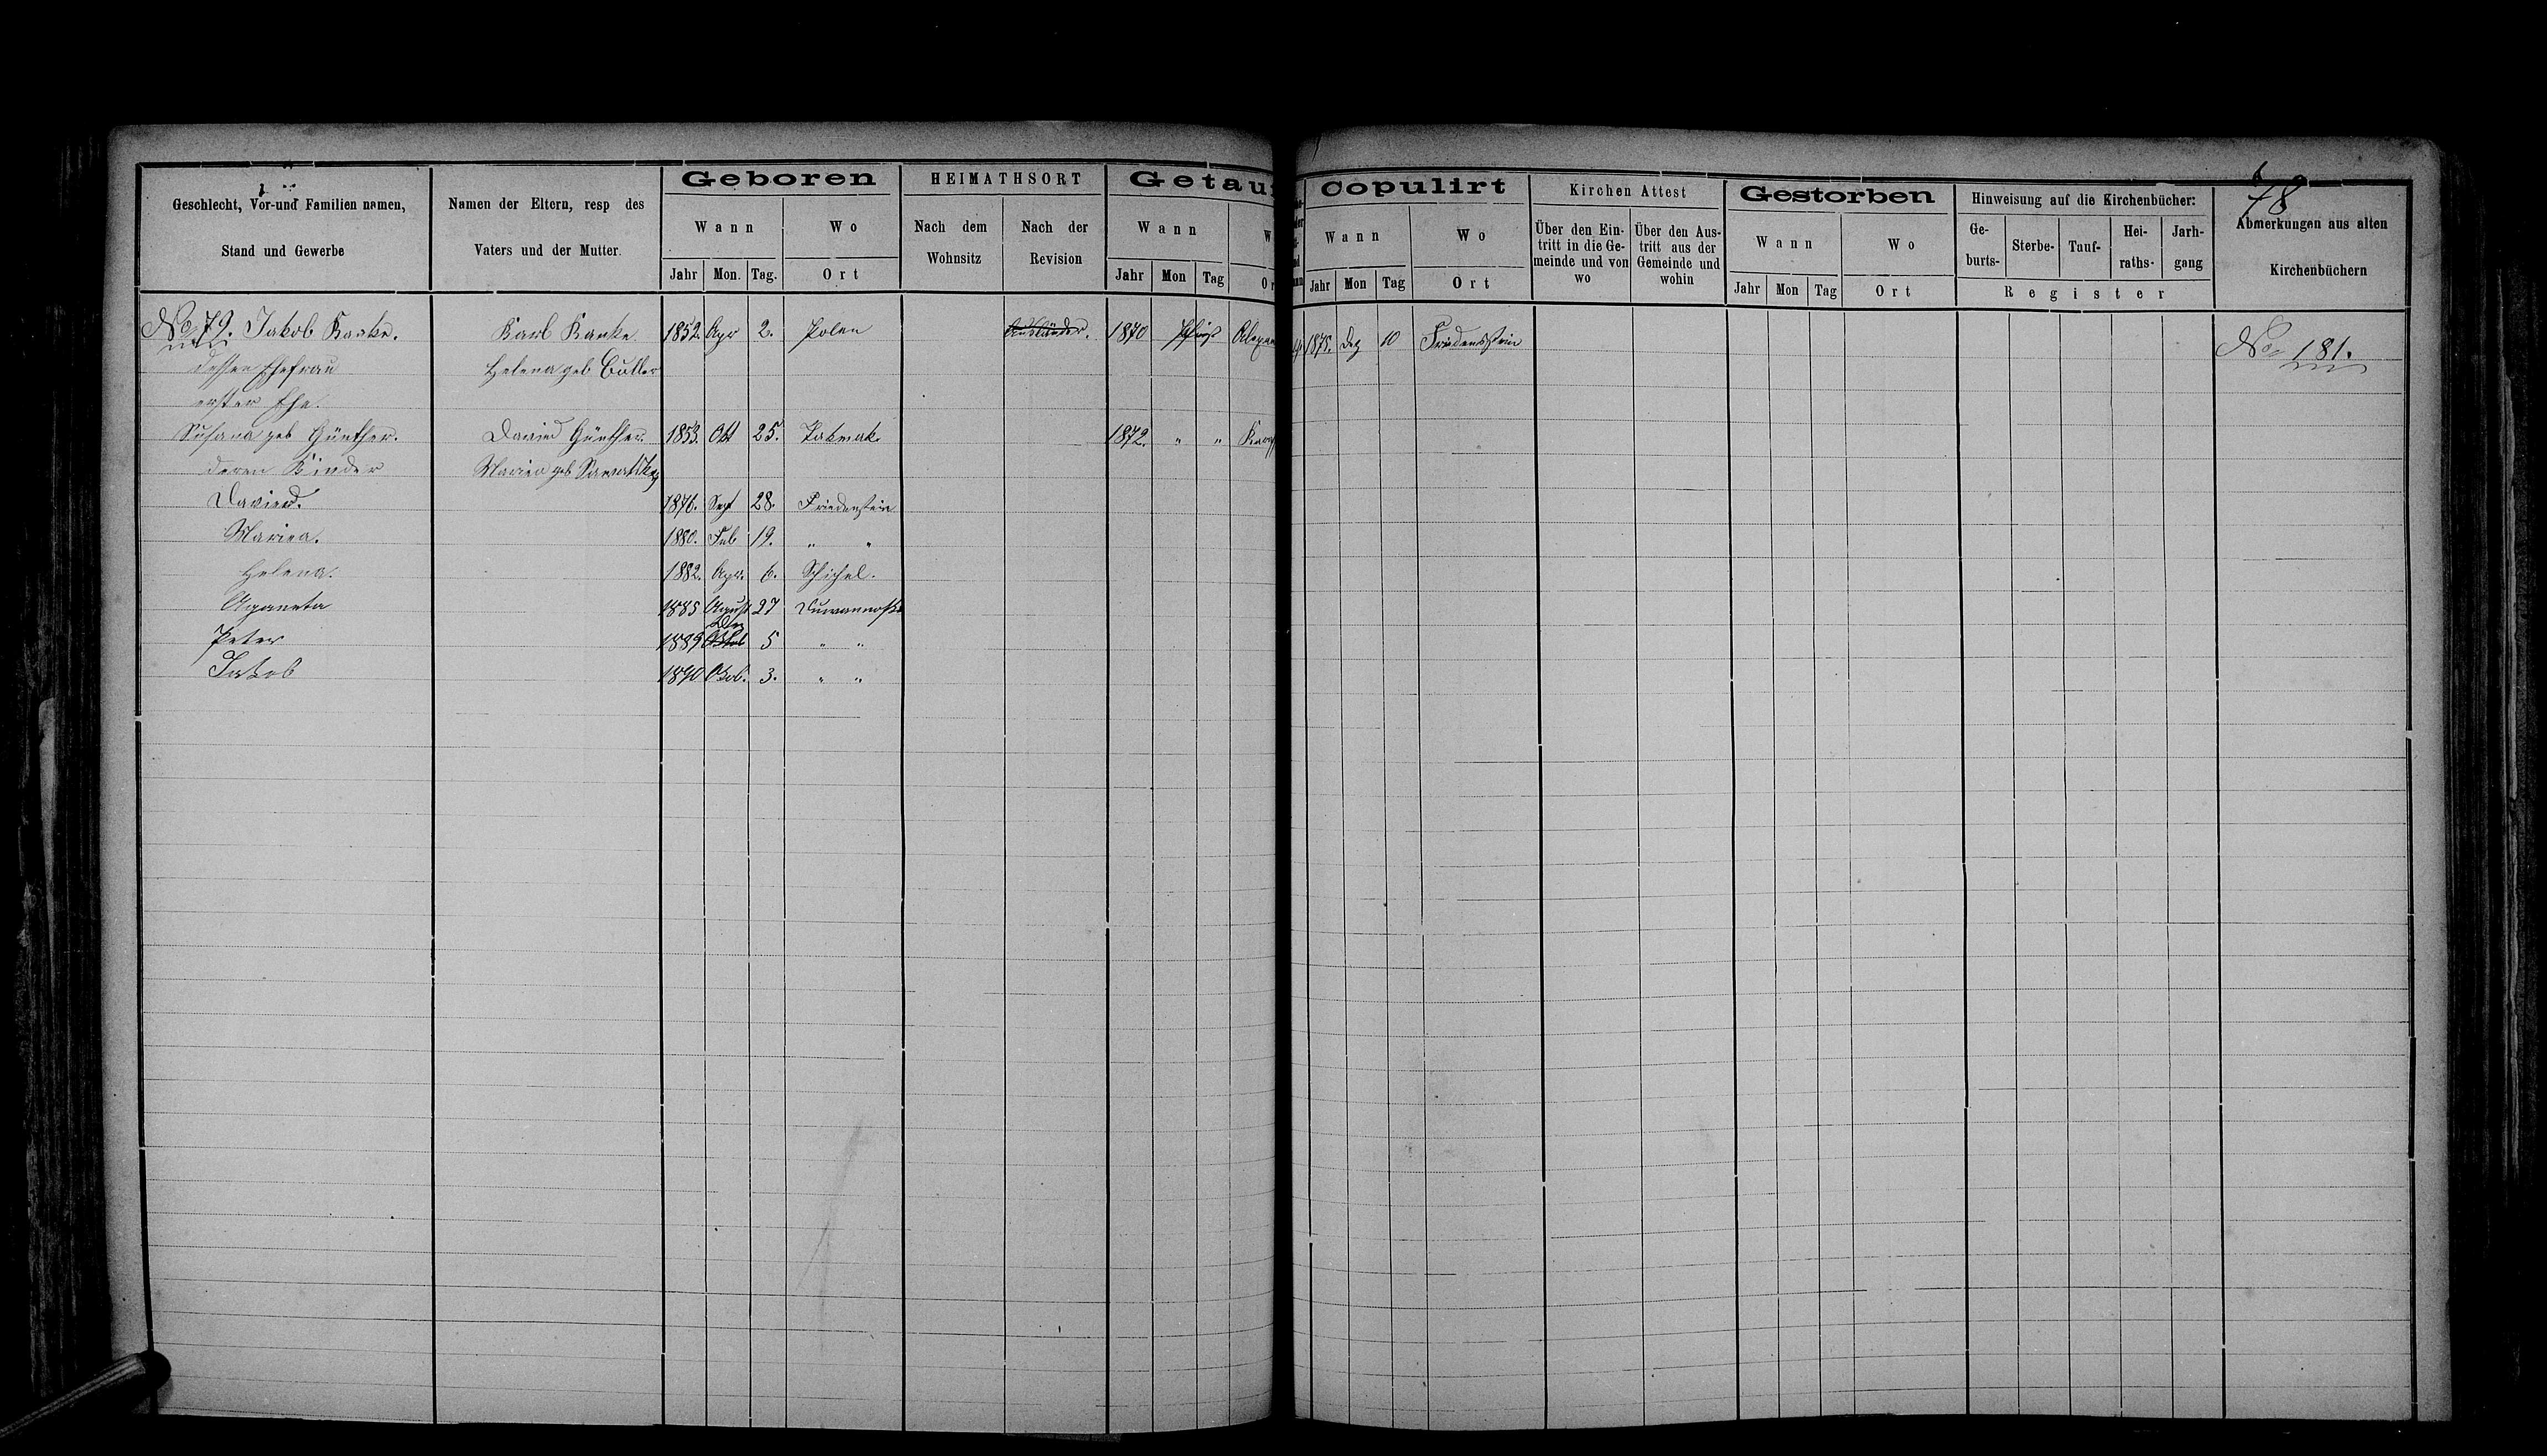 78
Geschlecht, Vor-und Familien namen,
Stand und Gewerbe
Namen der Eltern, resp des
Vaters und der Mutter.
Geboren
Wann
Wo
Jahr Mon. Tag. Ort
HEIMATHSORT
Nach dem Wohnsitz
Nach der Revision
Getau
Wann
W
Jahr Mon Tag Or
Copulirt
Wann
Wo
Jahr Mon Tag Ort
Kirchen Attest
Über den Ein-
tritt in die Ge-
meinde und von
wo
Über den Aus-
tritt aus der
Gemeinde und
wohin
Gestorben
Wann
Wo
Jahr Mon Tag Ort
Hinweisung auf die Kirchenbücher:
Ge-
burts-
Sterbe-
Tauf-
Hei-
raths-
Jarh-
gang
Register
Abmerkungen aus alten
Kirchenbüchern
No 79. Jakob Kanke. Karl Kanke 1852. Apr 2. Polen Ausländer. 1870 Pfings Alexan 1875. Dez 10 Friedensstein No 181.
dessen Ehefrau Helena geb
erster Ehe.
Susana geb Günther. David Günther. 1853. Okt 25. Tokmak. 1872. " "
deren Kinder Maria geb Sawatzky
David. 1876. Sept 28. Friedenstein
Maria. 1880. Feb 19. " "
Helena. 1882. Apr. 6.
Aganeta 1885 August 27
Peter 1889 Dez 5 " "
Jakob 1890 Oktob. 3. " "